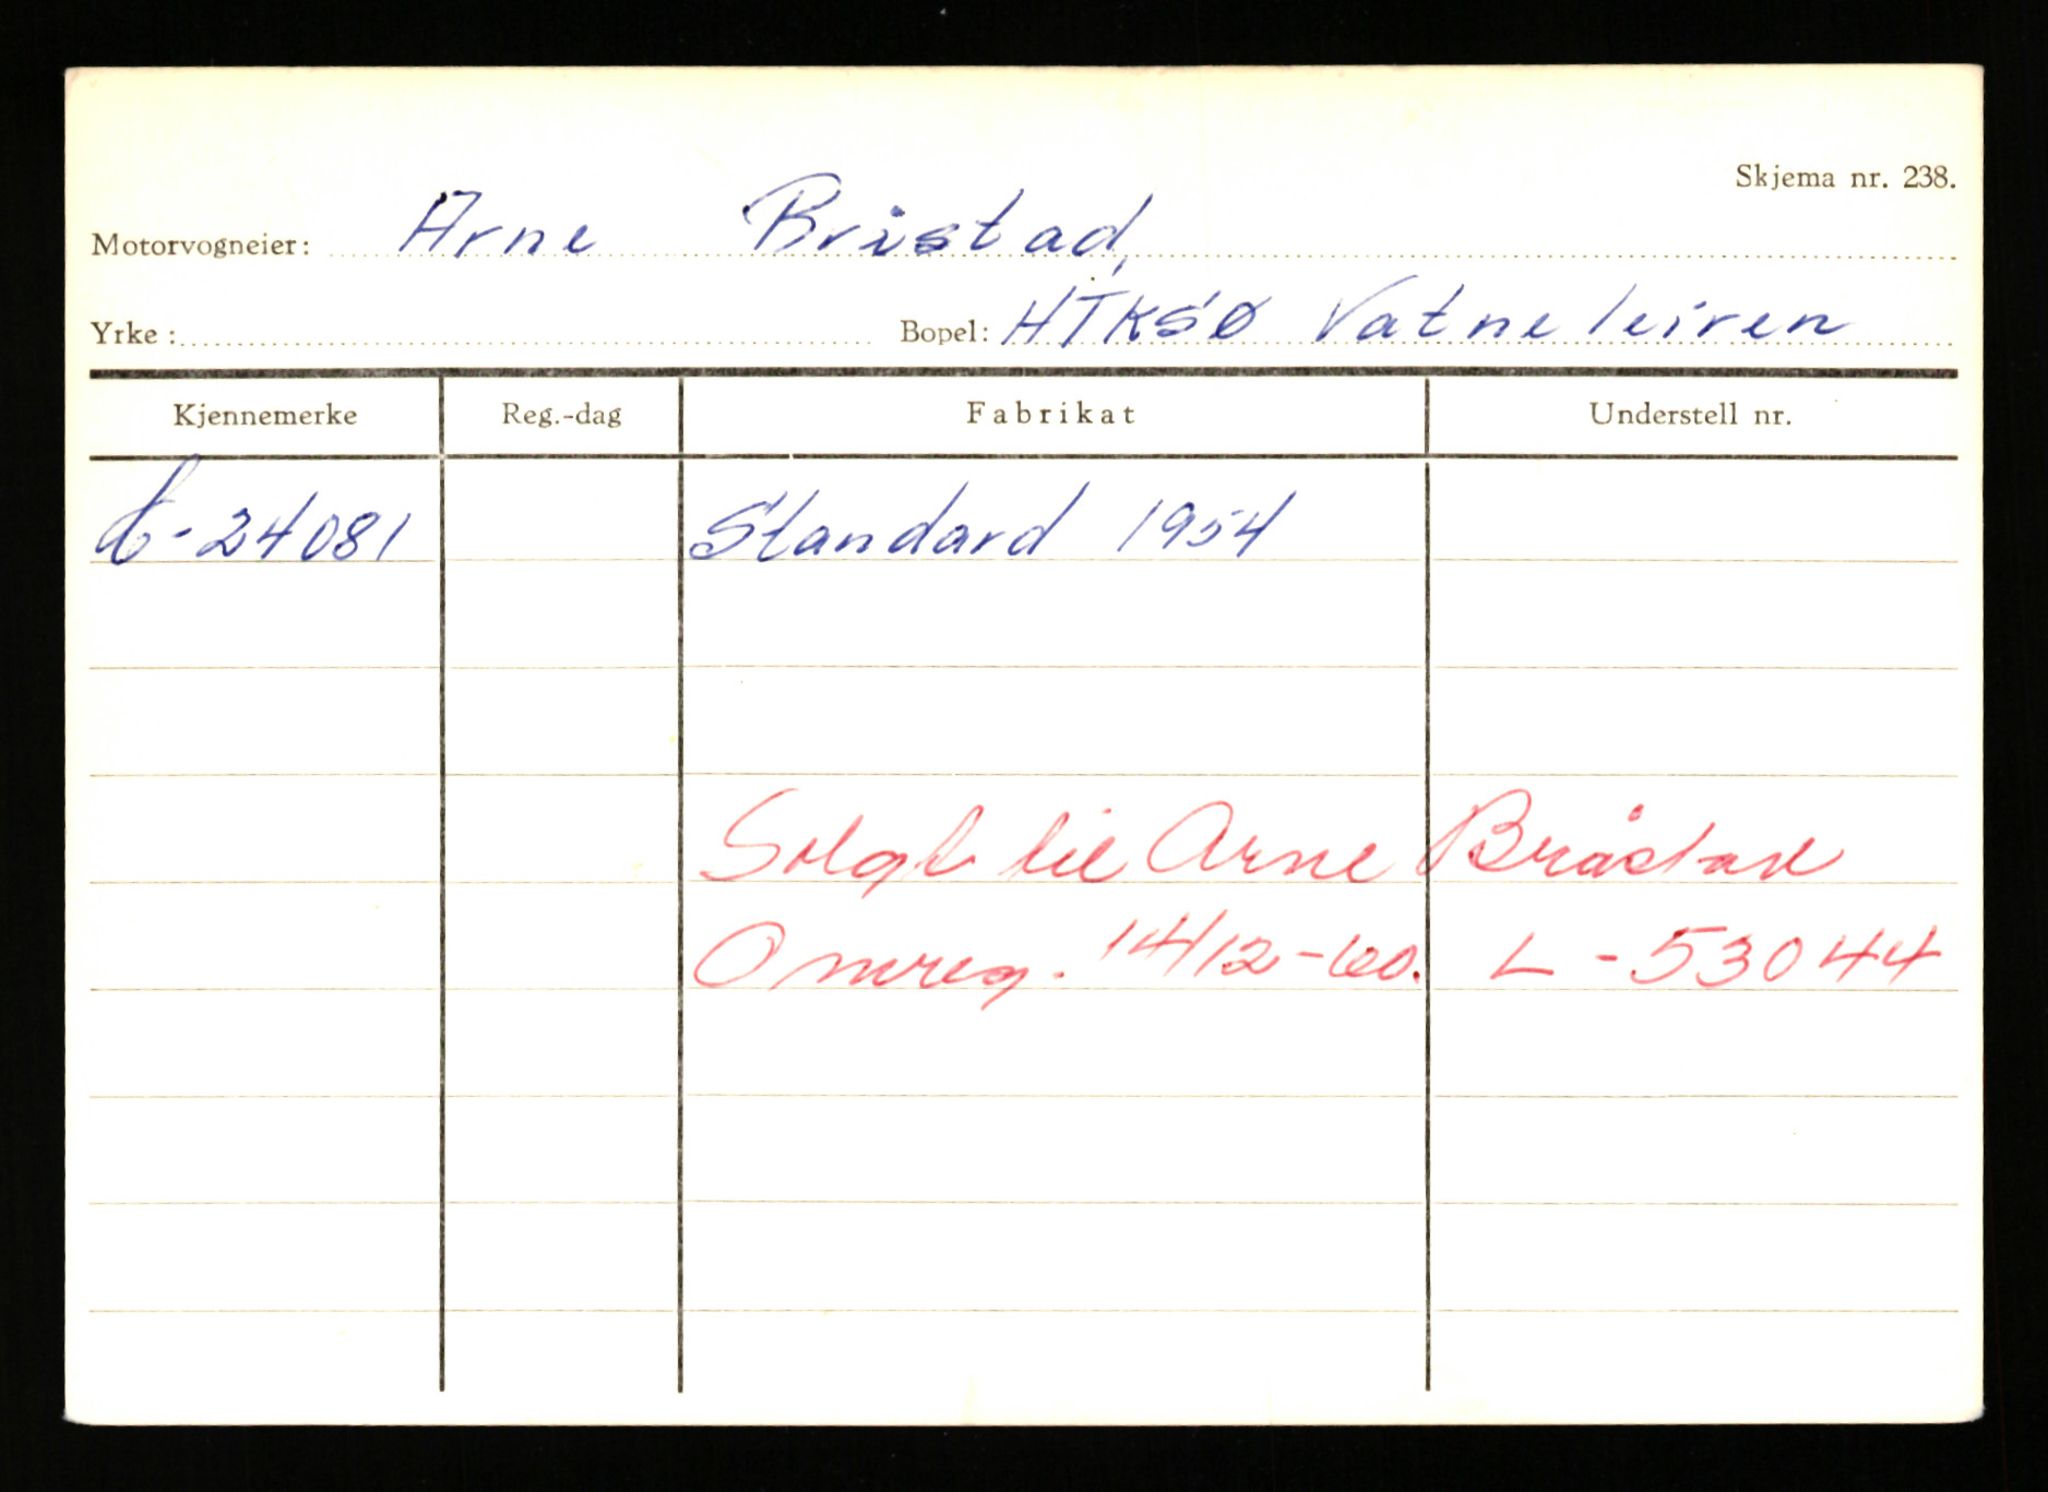 Skjema nr. 238.
Motorvogneier: Arne Bristad,
Yrke: Bopel: HTKSØ Vatneleiren
Kjennemerke Reg.-dag Fabrikat Understell nr.
24081 Standard 1954
Solgt til Arne Bråstad
Omreg. 14/12-60. L-53044